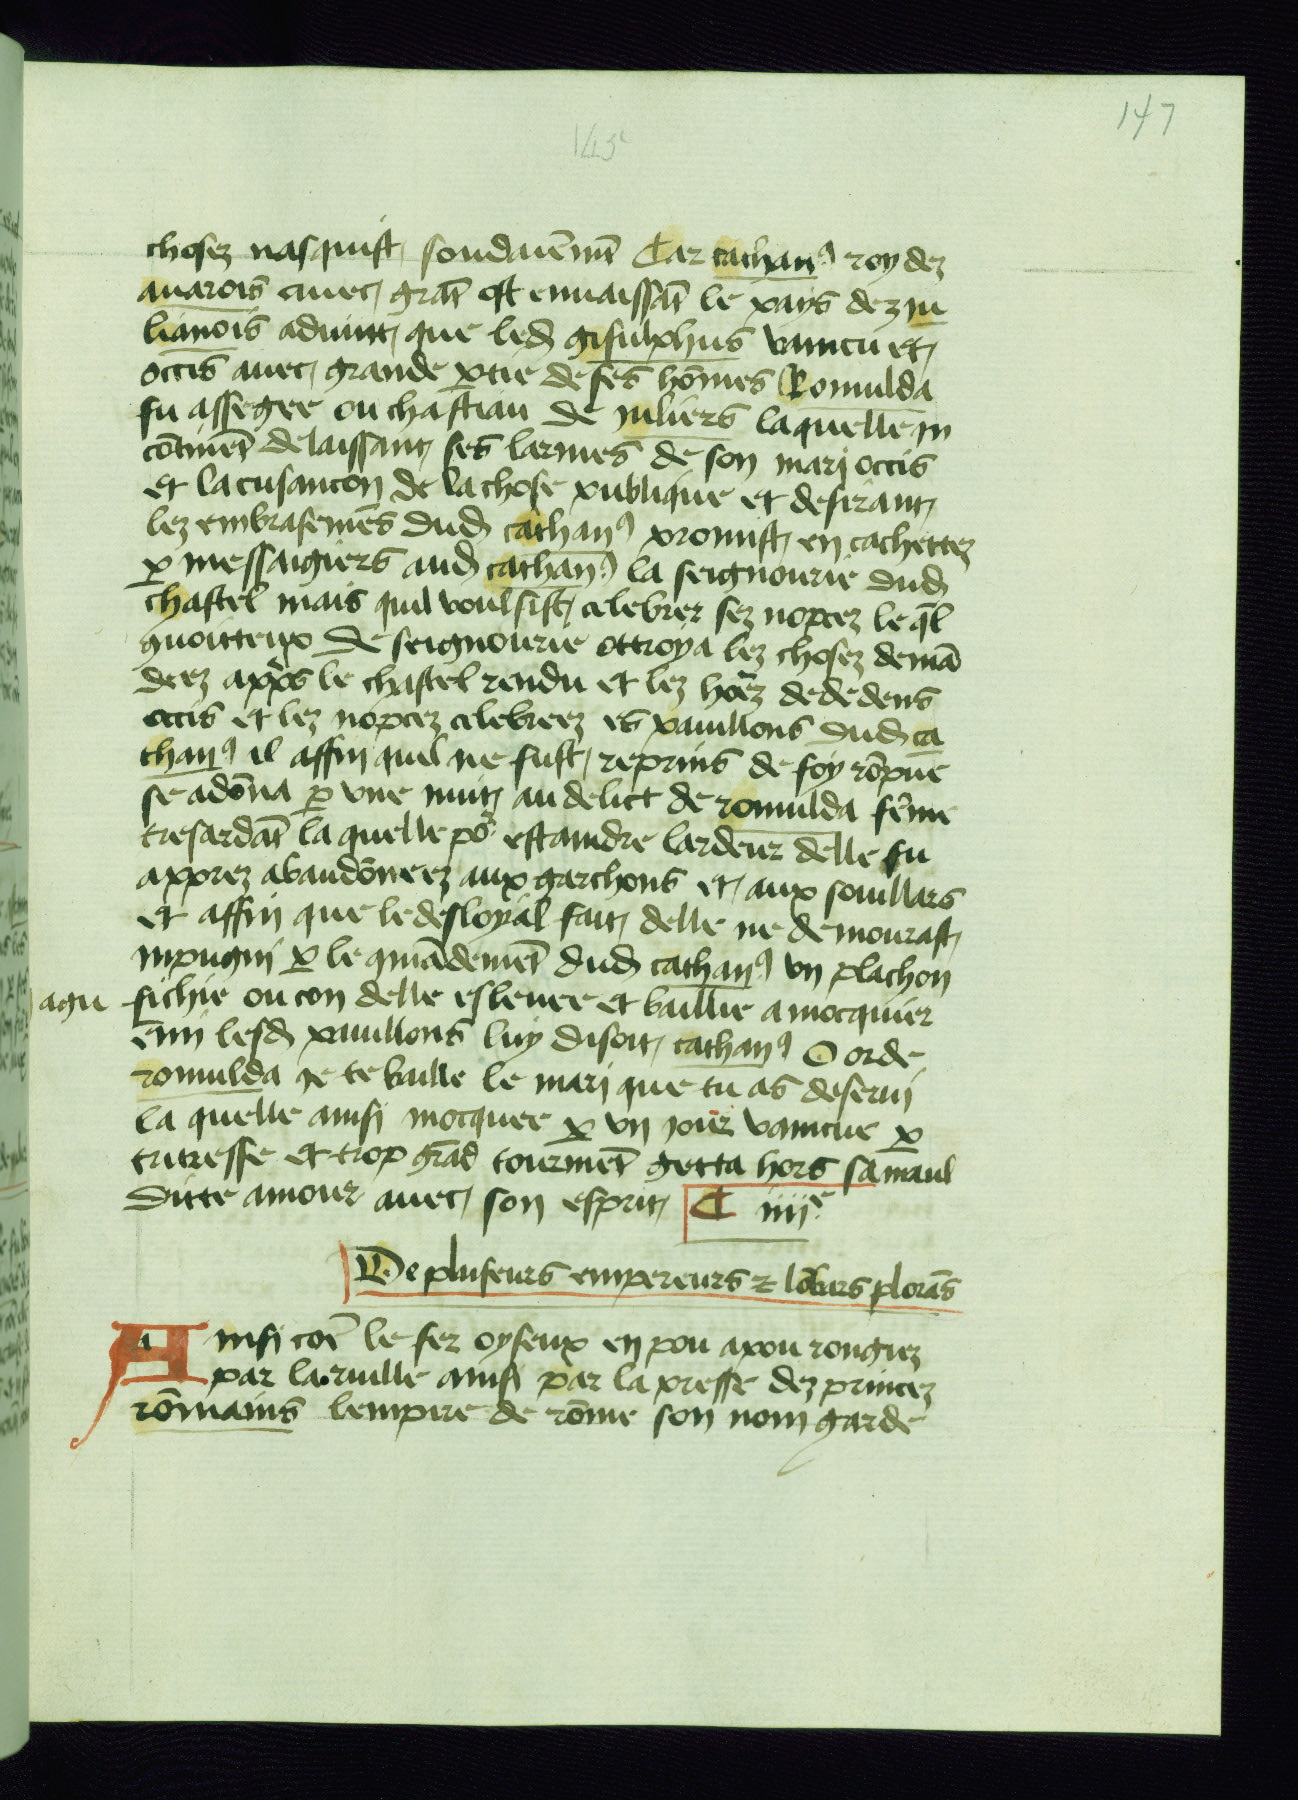 147
145
chosez nasquist soudaēmēt Car cathanꝯ roy dez
auarois auec grāt ost enuaissāt le pays dez iu
lianois aduint que led gisulphus vaincu et
occis auec grande ꝑtie de ses hōmes Romulda
fu assegee ou chastiau de iuliers laquelle in
cōtinēt delaissant ses larmes de son mari occis
et la cusancon de la chose publique et desirant
lez embrasemēs dud cathanꝯ promist en cachettez
ꝑ messaigiers aud cathanꝯ la seignourie dud
chastel mais quil voulsist celebrer sez nopcez le q̄l
de seignourie ottroya lez chosez demā
deez appꝭs le chastel rendu et lez hōez dededens
occis et lez nopcez celebreez es pauillons dud ca
thanꝯ il affin quil ne fust reprins de foy rōpue
se adōna ꝑ vne nuit au delict de romulda fēme
tresardāt la quelle poꝰ estaindre lardeur delle fu
apprez abandōneez aux garchons et aux souillars
et affin que le desloyal fait delle ne demourast
inpugni ꝑ le qmādemēt dud cathanꝯ vn plachon
agu
fichie ou con delle esleuee et baillie a mocquier
emi lesd pauillons luy disoit cathanꝯ O orde
romulda ie te baille le mari que tu as deserui
la quelle ainsi mocquee ꝑ vn iour vaincue ꝑ
tritresse et trop grād tourmēt getta hors sa maul
ditte amour auec son esprit C iiiiᵉ
De pluseurs empereurs ⁊ lōbars plorās
Ainsi cōe le fer oyseux en pou apou rongiez
par la ruille ainsi par la presse dez princez
rōmains lempire de rōme son nom garde